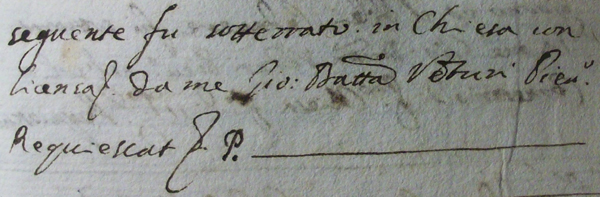 seguente fu sotterrato in Chiesa con
licensa da me Gio: Batta Veturi Piev.o
Requiescat I P.